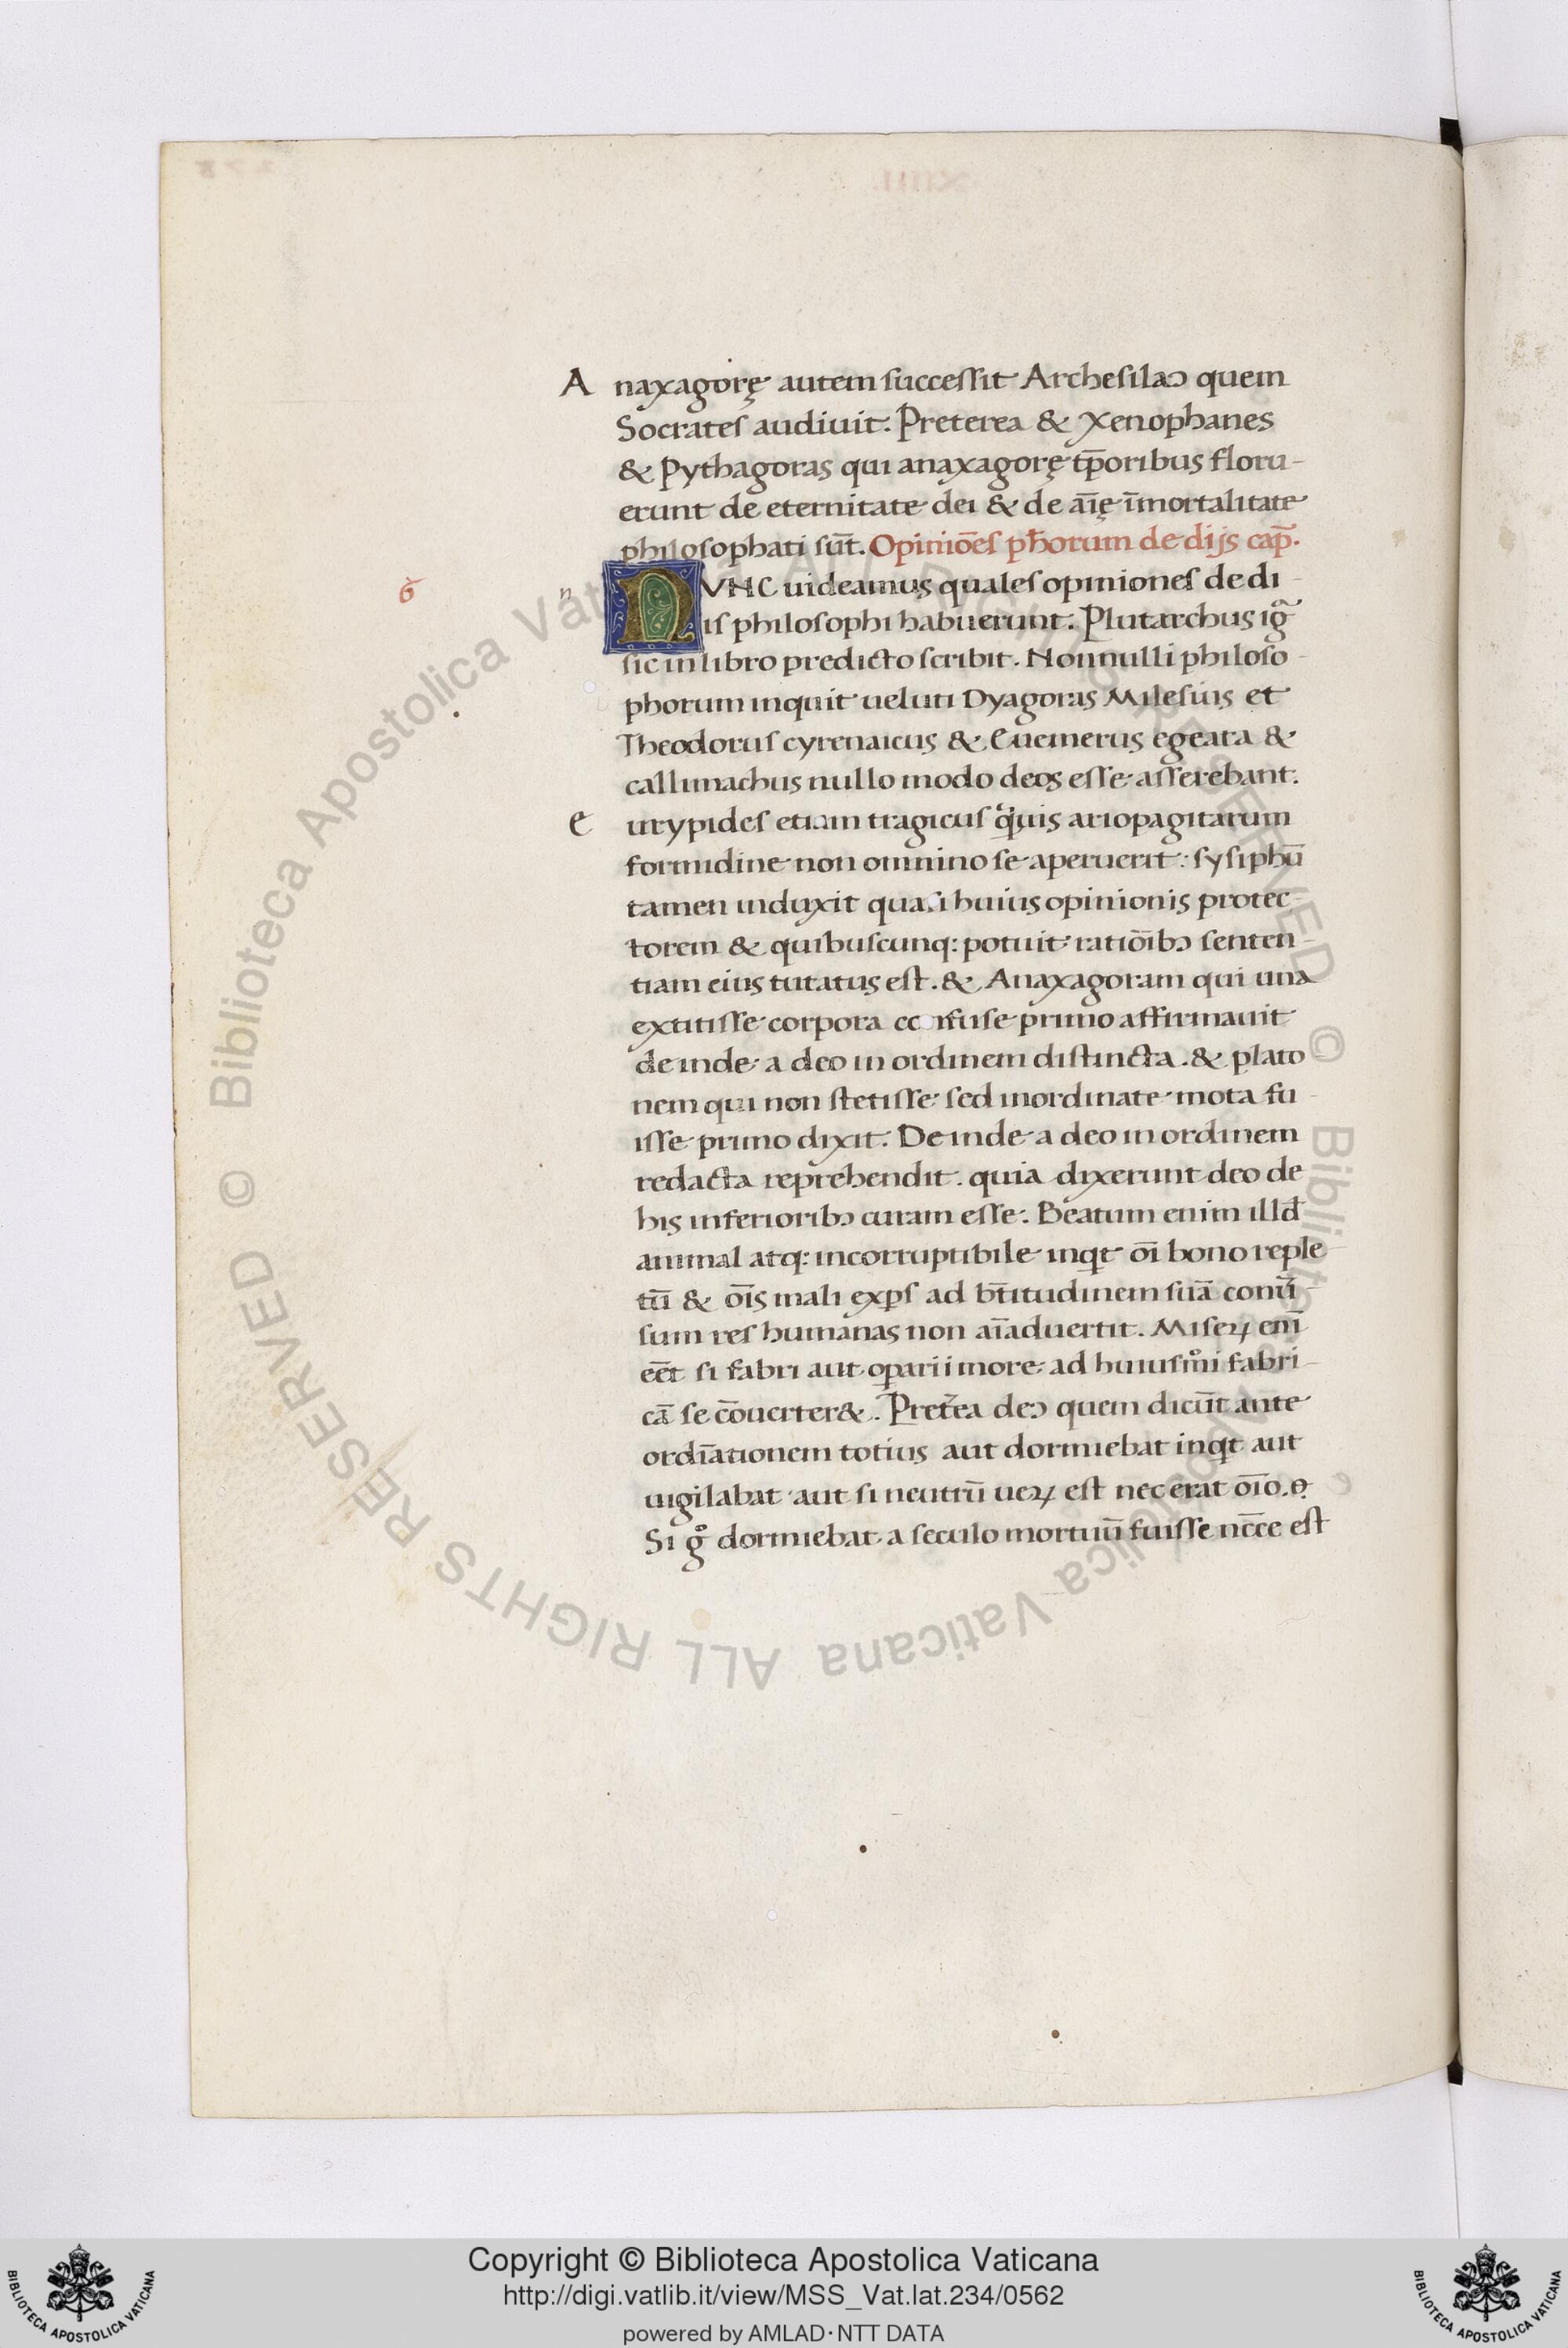 Anaxagorę autem successit Archesilaꝰ quem
Socrates audiuit. Preterea & Xenophanes
& Pythagoras qui anaxagorę tp̄oribus floru-
erunt de eternitate dei & de aīę īmortalitate
philosophati sūt. Opiniōes pħorum de dijs cap̄.
6
n
NVNC uideamus quales opiniones de di-
is philosophi habuerunt. Plutarchus ig̃
sic in libro predicto scribit. Nonnulli philoso-
phorum inquit ueluti Dyagoras Milesius et
Theodorus cyrenaicus & Euemerus egeata &
callimachus nullo modo deos esse asserebant.
Eurypides etiam tragicus q̃uis ariopagitarum
formidine non omnino se aperuerit: sysiphū
tamen induxit quasi huius opinionis protec-
torem & quibuscunq: potuit ratiōibꝰ senten-
tiam eius tutatus est. & Anaxagoram qui una
extitisse corpora confuse primo affirmauit
de inde a deo in ordinem distincta. & plato
nem qui non stetisse sed inordinate mota fu-
isse primo dixit. De inde a deo in ordinem
redacta reprehendit. quia dixerunt deo de
his inferioribꝰ curam esse. Beatum enim illđ
animal atq: incorruptibile inqt oī bono reple-
tū & oīs mali exꝑs ad bt̄itudinem suā conũ-
sum res humanas non aīaduertit. Miseꝝ enī
eēt si fabri aut oꝑarii more ad huiusmͦi fabri-
cā se cōuerter&. Pret̃ea deꝰ quem dicūt ante
ordīationem totius aut dormiebat inqt aut
uigilabat aut si neutrū ueꝝ est nec erat oīo.
Si gͦ dormiebat a seculo mortuū fuisse nc̄ce est
Copyright © Biblioteca Apostolica Vaticana
http://digi.vatlib.it/view/MSS_Vat.lat.234/0562
powered by AMLAD·NTT DATA
BIBLIOTECA APOSTOLICA VATICANA
BIBLIOTECA APOSTOLICA VATICANA
© Biblioteca Apostolica Vaticana ALL RIGHTS RESERVED © Biblioteca Apostolica Vaticana ALL RIGHTS RESERVED